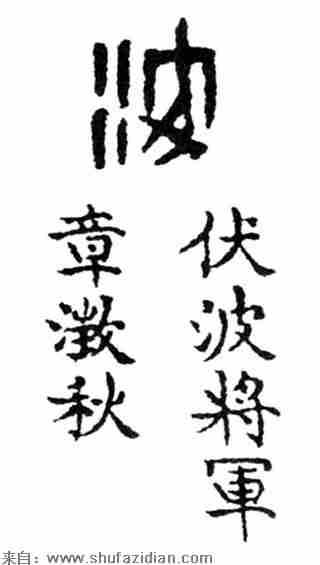 波
伏波將軍
章澂秋
来自：www.shufazidian.com